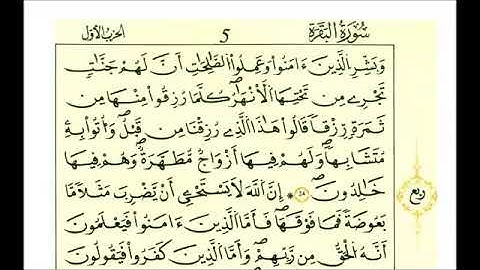 سُورَةُ الْبَقَرَةِ 5 الحزب الأول
وَبَشِّرِ الَّذِينَ ءَامَنُوا وَعَمِلُوا الصَّٰلِحَٰتِ أَنَّ لَهُمْ جَنَّٰتٍ
تَجْرِے مِن تَحْتِهَا اَ۬لْأَنْهَٰرُ كُلَّمَا رُزِقُوا مِنْهَا مِن
ثَمَرَةٍ رِّزْقاً قَالُوا هَٰذَا اَ۬لَّذِے رُزِقْنَا مِن قَبْلُ وَأُتُوا بِهِۦ
مُتَشَٰبِهاً وَلَهُمْ فِيهَا أَزْوَٰجٌ مُّطَهَّرَةٌ وَهُمْ فِيهَا
خَٰلِدُونَ ۞ إِنَّ اَ۬للَّهَ لَا يَسْتَحْيِۦ أَنْ يَّضْرِبَ مَثَلاً مَّا
ربع
بَعُوضَةً فَمَا فَوْقَهَا فَأَمَّا اَ۬لَّذِينَ ءَامَنُوا فَيَعْلَمُونَ
أَنَّهُ اُ۬لْحَقُّ مِن رَّبِّهِمْ وَأَمَّا اَ۬لَّذِينَ كَفَرُوا فَيَقُولُونَ